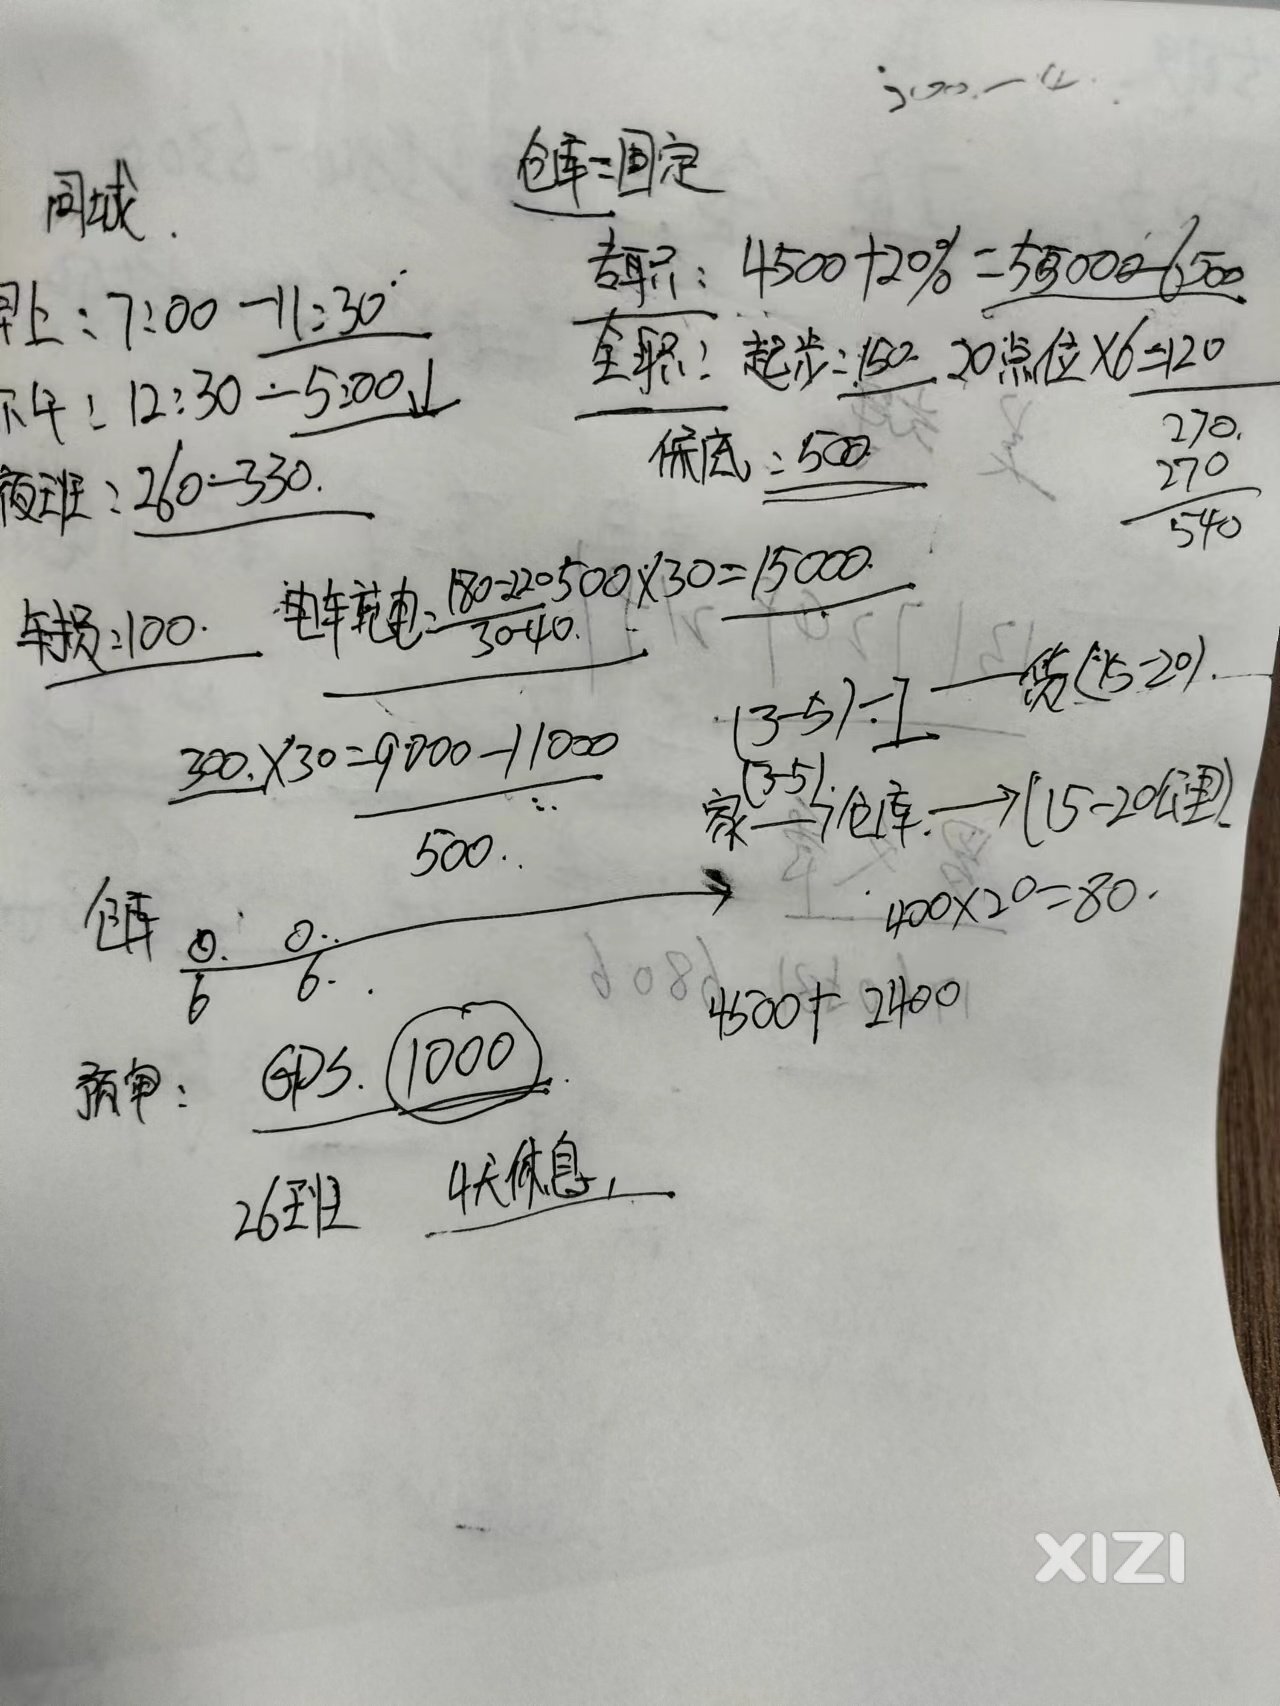 仓库=固定
同城.
专职: 4500+20%=55000-6500
早上: 7:00-11:30
全职: 起步:150 20点位×6=120
下午: 12:30-5:00↓
270.
保底:500
270
夜班:260-330.
540
车损:100. 电车充电:180-220 500×30=15000.
30-40.
(3-5)÷1—货(15-20).
300.×30=9000-11000
(3-5)
家→仓库.→(15-20公里)
500..
仓库
400×20=80.
0. 0..
6 6..
4500+2400
预审: GPS. 1000
26班 4天休息,
XIZI